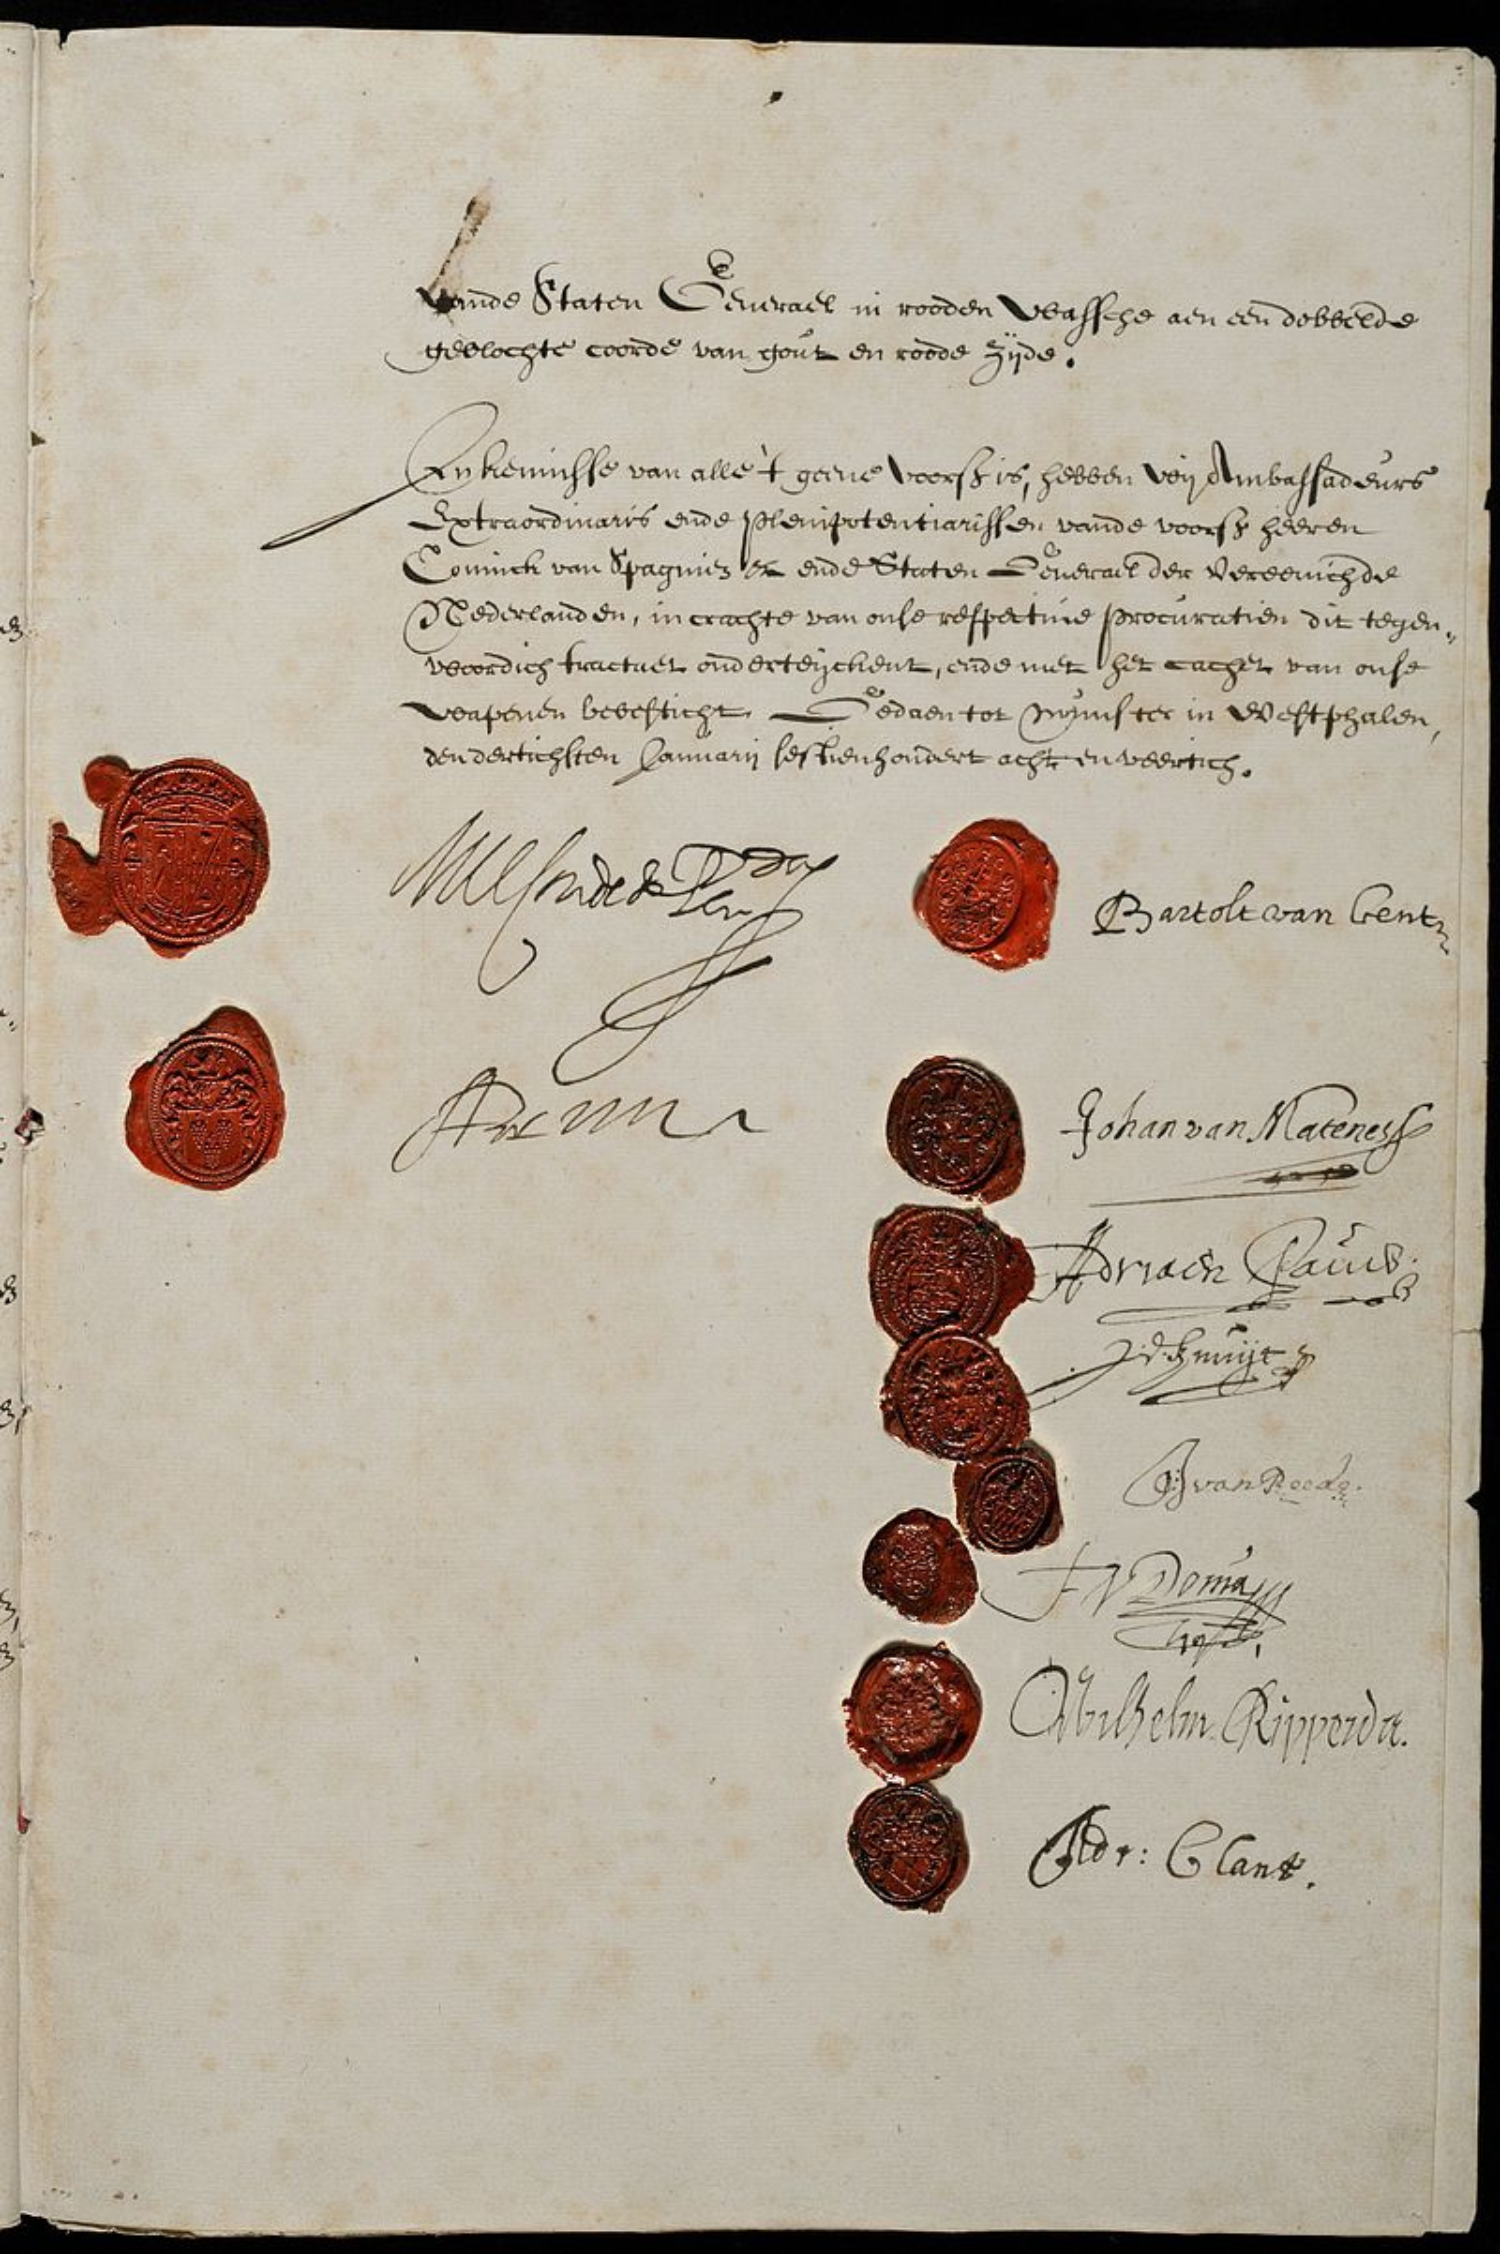 vande Staten Generael in rooden Wassche aen een dobbelde
gevlochte coorde van gout en roode zijde.
In kennisse van alle 't geene voorsz is, hebben Wij Ambassadeurs
Extraordinaris ende Plenipotentiarissen vande voorsz heeren
Coninck van Spagnien &c ende Staten Generael der Vereenichde
Nederlanden, in crachte van onse respective Procuratien dit tegen-
woordich tractaet onderteijckent, ende met het cachet van onse
Wapenen bevesticht. Gedaen tot Munster in Westphalen,
den dertichsten Januarij sesthienhondert acht en veertich.
Bartolt van Gent
Johan van Matenesse
Adriaen Pauw
J. d. Knuijt
G van Reede
F V Donia
Wilhelm Ripperda.
Adr: Clant.